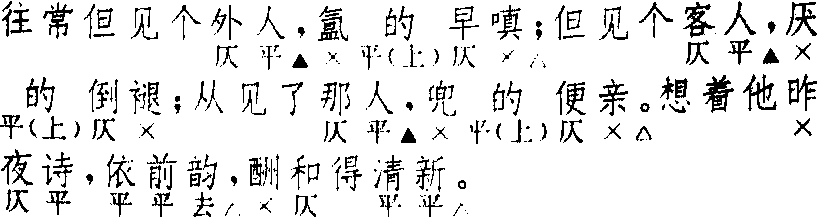 往常但见个外人，氲的早嗔；但见个客人，厌
仄平▲×平(上)仄×△ 仄平▲×
的倒褪；从见了那人，兜的便亲。想着他昨
平(上)仄× 仄平▲×平(上)仄×△ ×
夜诗，依前韵，酬和得清新。
仄平 平平去△×仄 平平△